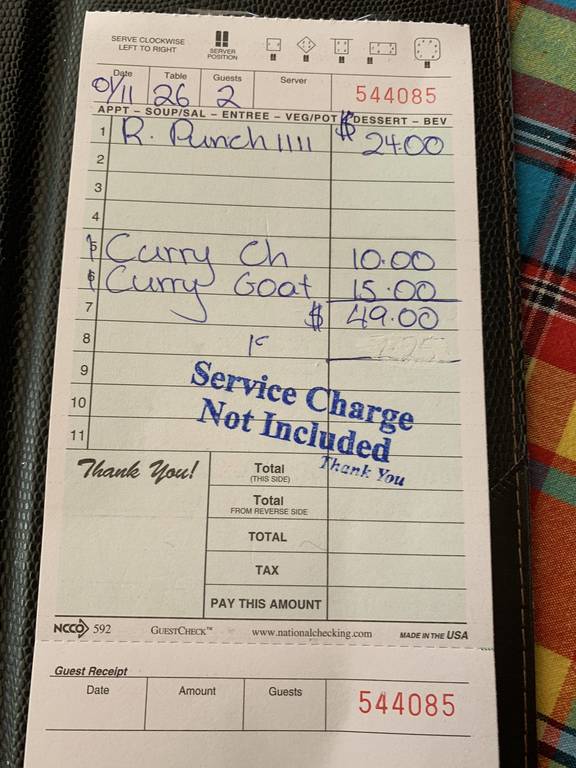 SERVE CLOCKWISE
LEFT TO RIGHT
SERVER
POSITION
Date Table Guests Server
01/11 26 2 544085
APPT – SOUP/SAL – ENTREE – VEG/POT – DESSERT – BEV
1 R. Punch IIII $ 24.00
2
3
4
5 1 Curry Ch 10.00
6 1 Curry Goat 15.00
7 $ 49.00
8
9
10
11
Service Charge
Not Included
Thank You
Thank You!
Total
(THIS SIDE)
Total
FROM REVERSE SIDE
TOTAL
TAX
PAY THIS AMOUNT
NCCO 592 GUESTCHECK™ www.nationalchecking.com MADE IN THE USA
Guest Receipt
Date Amount Guests 544085